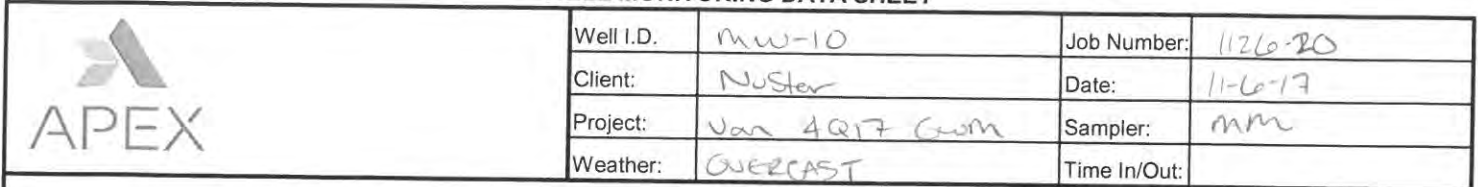 MONITORING DATA SHEET
APEX
Well I.D. MW-10 Job Number: 1126-20
Client: NuStar Date: 11-6-17
Project: Van 4Q17 GWM Sampler: MM
Weather: OVERCAST Time In/Out: